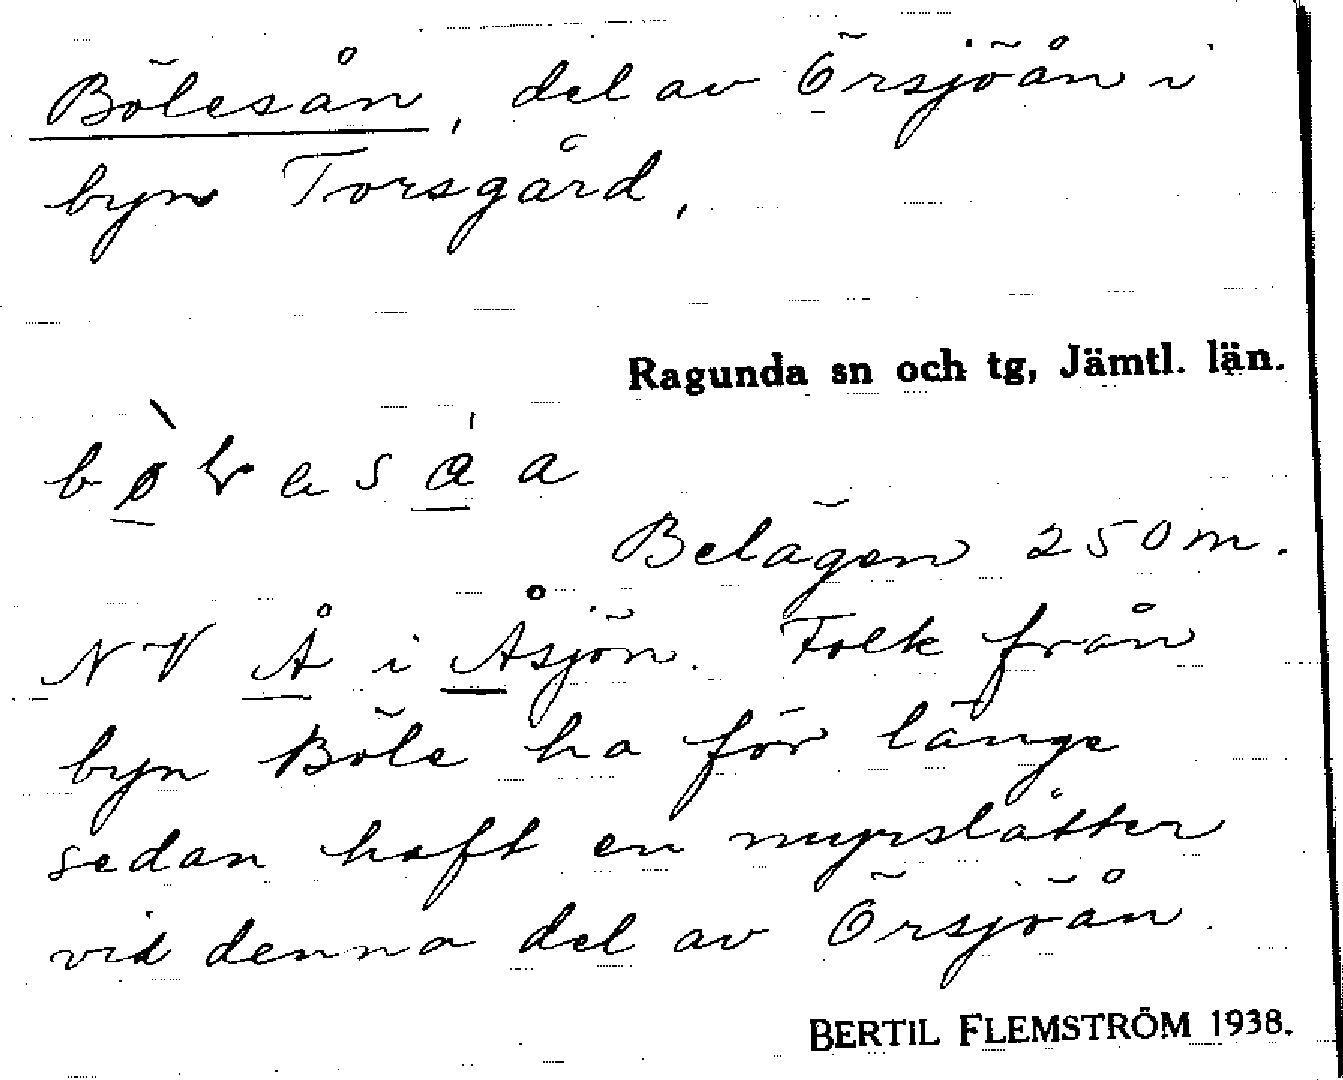 Bölesån, del av Örsjöån i
byn Torsgård,
Ragunda sn och tg, Jämtl. län.
Belägen 250 m.
NV Å i Åsjön. Folk från
byn Böle ha för länge
sedan haft en myrslåtter
vid denna del av Örsjöån.
BERTIL FLEMSTRÖM 1938.